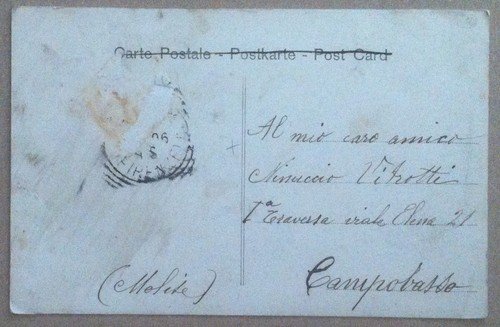 Carte Postale - Postkarte - Post Card
06
FIRENZE
Al mio caro amico
Ninuccio
1ª Traversa viale Elena 21
Campobasso
(Molise)